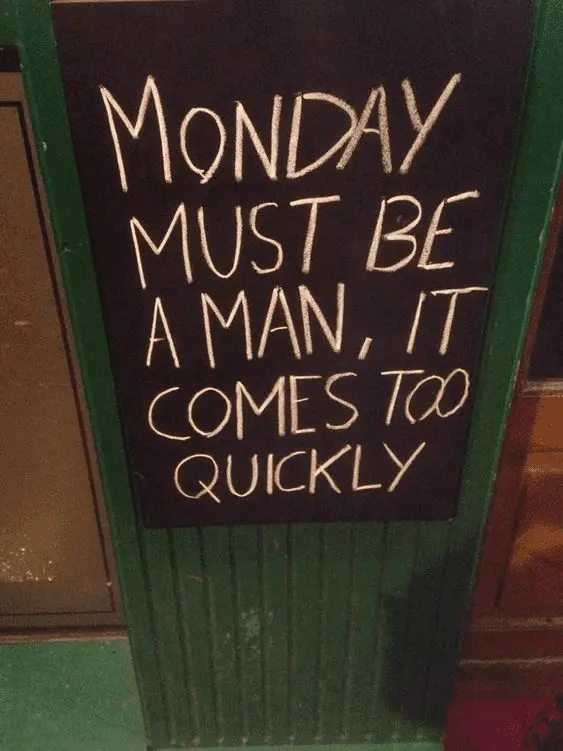 MONDAY
MUST BE
A MAN, IT
COMES TOO
QUICKLY